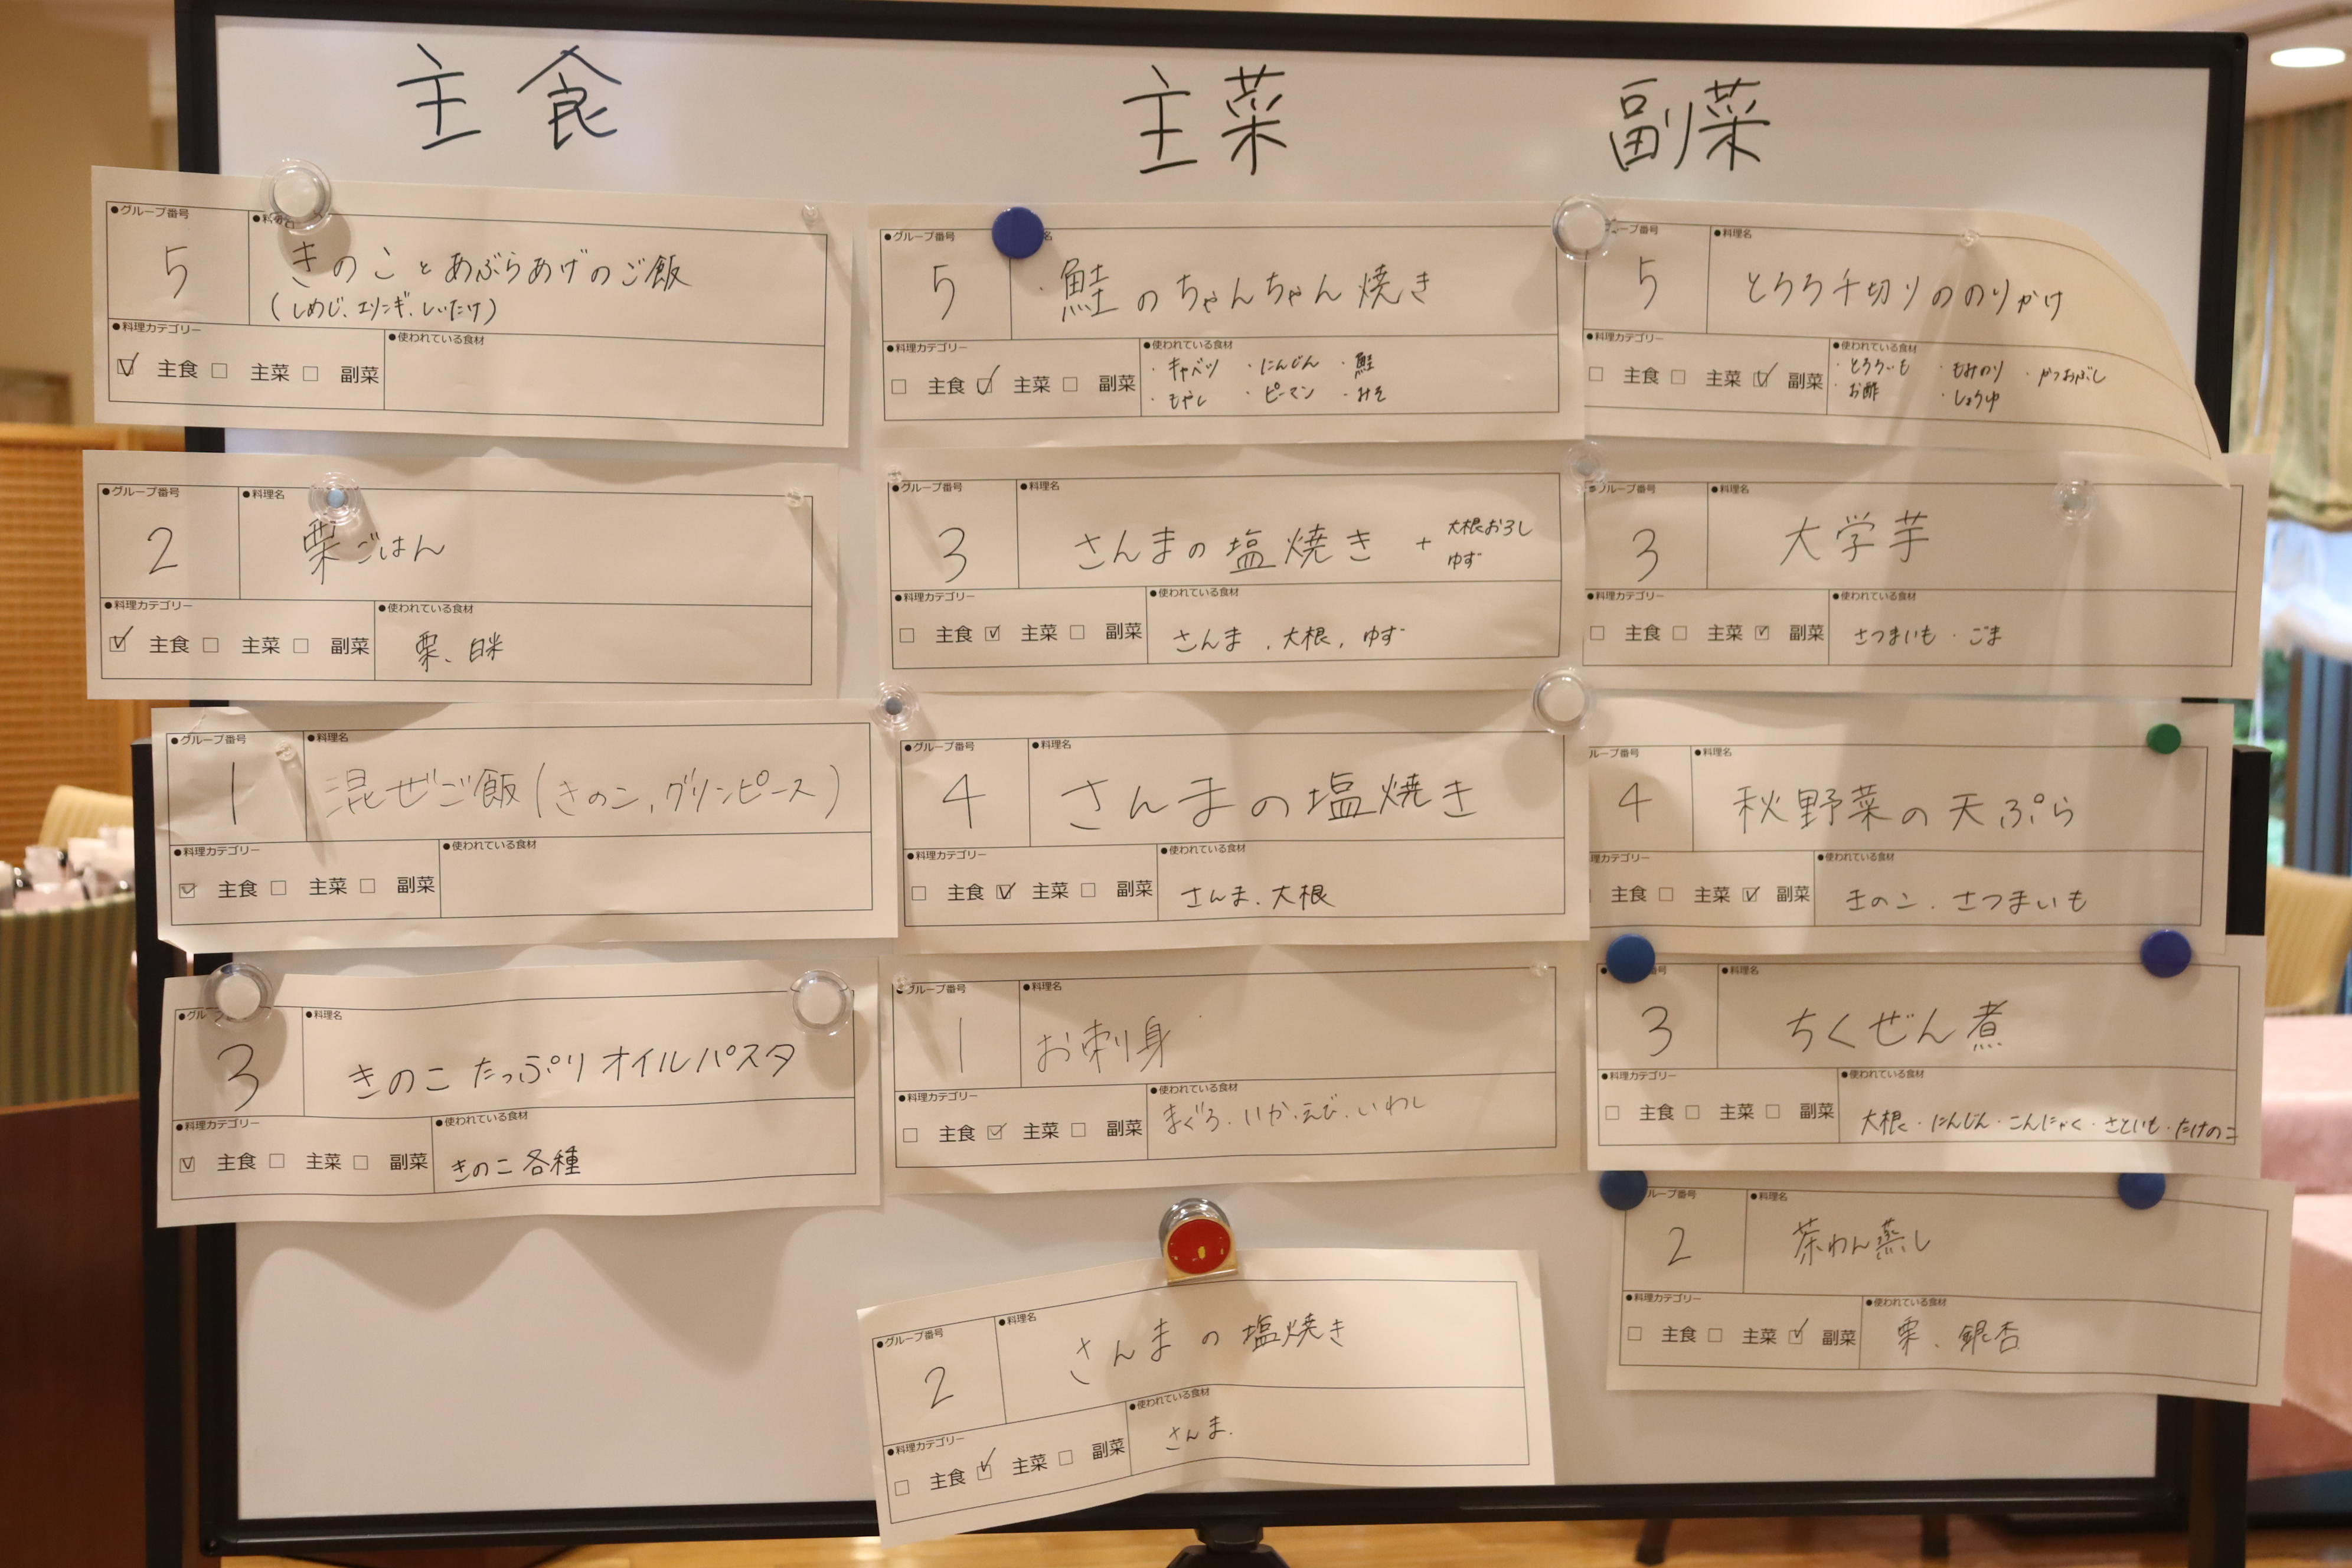 主食
主菜
副菜
●グループ番号
5
きのことあぶらあげのご飯
(しめじ、エリンギ、しいたけ)
●料理カテゴリー
主食 主菜 副菜
●使われている食材
●グループ番号
2
●料理名
栗ごはん
●料理カテゴリー
主食 主菜 副菜
●使われている食材
栗、白米
●グループ番号
1
●料理名
混ぜご飯(きのこ,グリンピース)
●料理カテゴリー
主食 主菜 副菜
●使われている食材
3
●料理名
きのこたっぷりオイルパスタ
●料理カテゴリー
主食 主菜 副菜
●使われている食材
きのこ各種
●グループ番号
5
鮭のちゃんちゃん焼き
●料理カテゴリー
主食 主菜 副菜
●使われている食材
・キャベツ ・にんじん ・鮭
・もやし ・ピーマン ・みそ
●グループ番号
3
●料理名
さんまの塩焼き + 大根おろし
ゆず
●料理カテゴリー
主食 主菜 副菜
●使われている食材
さんま、大根、ゆず
●グループ番号
4
●料理名
さんまの塩焼き
●料理カテゴリー
主食 主菜 副菜
●使われている食材
さんま、大根
●グループ番号
1
●料理名
お刺身
●料理カテゴリー
主食 主菜 副菜
●使われている食材
まぐろ、いか、えび、いわし
●グループ番号
2
●料理名
さんまの塩焼き
●料理カテゴリー
主食 主菜 副菜
●使われている食材
さんま
ープ番号
5
●料理名
とろろ千切りののりかけ
●料理カテゴリー
主食 主菜 副菜
●使われている食材
・とろろいも ・もみのり ・かつおぶし
・お酢 ・しょうゆ
グループ番号
3
●料理名
大学芋
●料理カテゴリー
主食 主菜 副菜
●使われている食材
さつまいも・ごま
ループ番号
4
●料理名
秋野菜の天ぷら
理カテゴリー
主食 主菜 副菜
●使われている食材
きのこ、さつまいも
号
3
●料理名
ちくぜん煮
●料理カテゴリー
主食 主菜 副菜
●使われている食材
大根・にんじん・こんにゃく・さといも・たけのこ
ループ番号
2
●料理名
茶わん蒸し
●料理カテゴリー
主食 主菜 副菜
●使われている食材
栗、銀杏